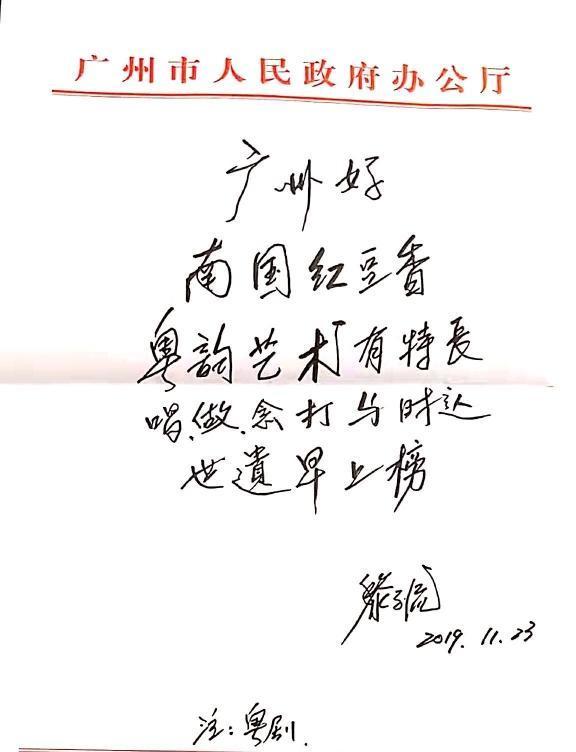 广州市人民政府办公厅
广州好
南国红豆香
粤韵艺术有特長
唱、做、念打与时达
世遺早上榜
黎子流
2019.11.23
注:粤剧.